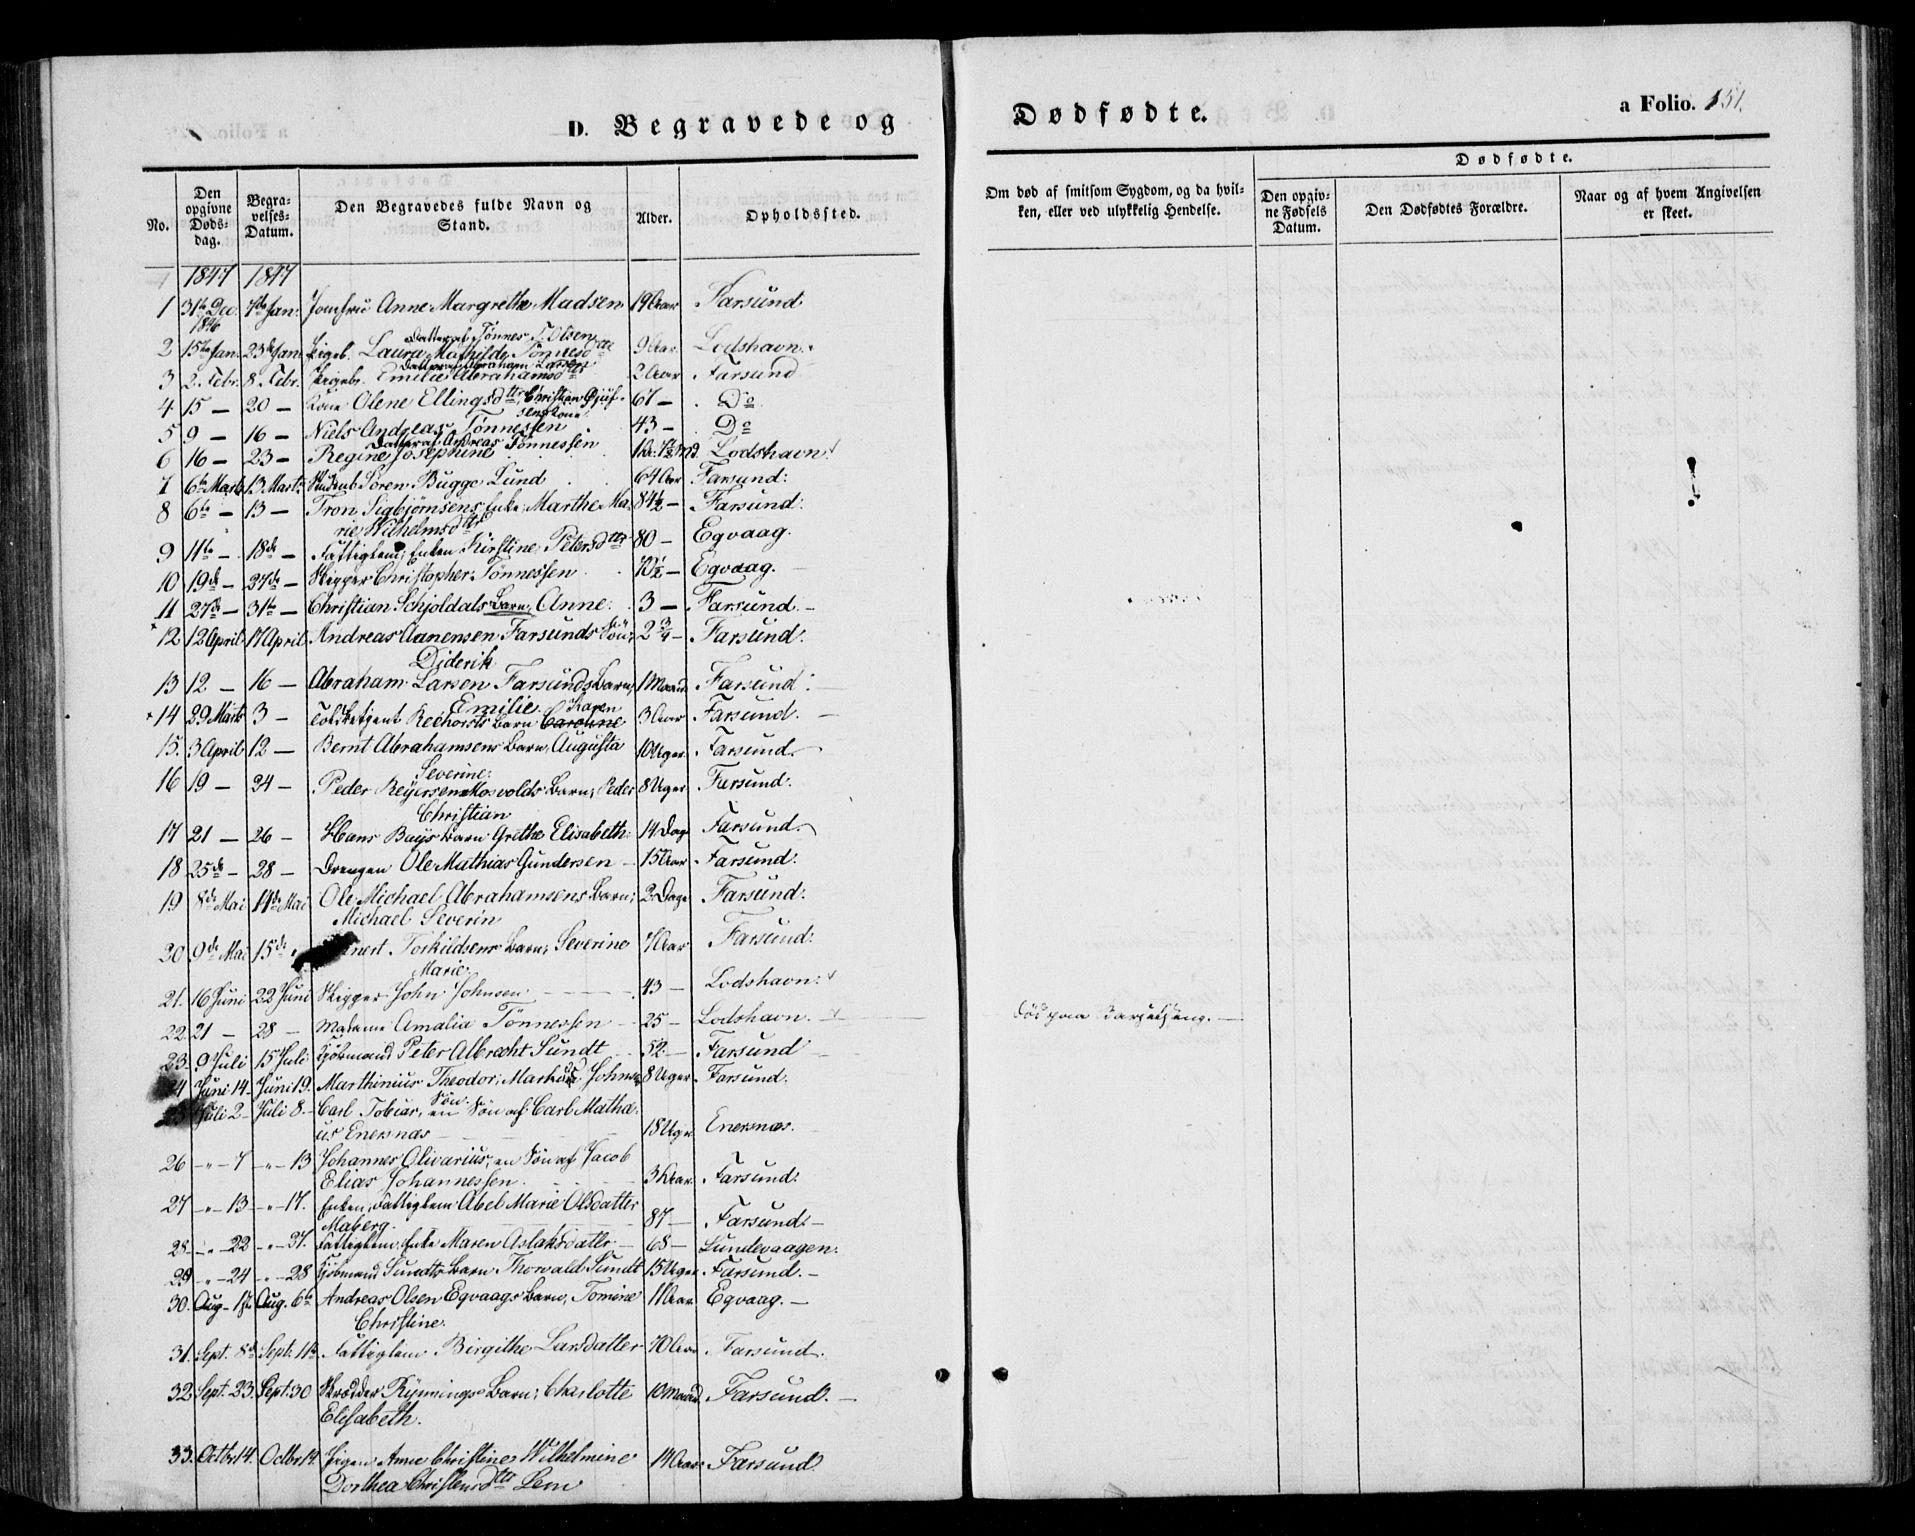 D. Begravede og
Dødfødte.
a Folio. 151.
No.
Den opgivne Døds-dag.
Begra-velses-Datum.
Den Begravedes fulde Navn og Stand.
Alder.
Opholdssted.
Om død af smitsom Sygdom, og da hvil-
ken, eller ved ulykkelig Hendelse.
Dødfødte.
Den opgiv-ne Fødsels Datum.
Den Dødfødtes Forældre.
Naar og af hvem Angivelsen er skeet.
1847 1847
1 31te Dec. 1846 7de Jan: Jomfru Anne Margrethe Madsen 19 Aar Farsund
Datter af Tønnes T. Olsen
2 15de Jan: 23de Jan: Pigeb. Laura Mathilde Tønnesdtr 9 Aar. Lodshavn.
Datter af Abraham Larsen
3 2. Febr. 8. Febr. Pigeb. Emilie Abrahamsdtr 2 Aar Farsund
4 15 — 20 — Kone Olene Ellingsdtr, Christian Gjüf-
sens Kone 67 — Do
5 9 — 16 — Niels Andreas Tønnessen 43 — Do
Datter af Andreas
6 16 — 23 — Regine Josephine Tønnessen Lodshavn
7 6te Marts 13 Marts Student Søren Bugge Lund 64 Aar Farsund:
8 6te — 13 — Tron Sigbjørnsens Enke Marthe Ma- 84½ — Farsund:
rie Wilhelmsdtr
9 11te — 18de — Fattiglem, Enken Kirstine Petersdtr 80 — Egvaag.
10 19de — 27de — Skipper Christopher Tønnessen 70½ Egvaag. —
11 27de — 31te — Christian Schjoldals Barn, Anne: 3 — Farsund. —
12 12 April 17 April Andreas Aanensen Farsunds Søn, 2¾ — Farsund:
Diderik
13 12 — 16 — Abraham Larsen Farsunds Barn, 1 Maand Farsund:
Emilie. Karen
14 29 Marts 3 — Toldbetjent Rechorsts Barn Caroline 3 Aar Farsund.
15. 3 April 12 — Bernt Abrahamsens Barn Augusta 10 Uger Farsund.
Severine:
16 19 — 24 — Peder Reyersen Mosvolds Barn, Peder 8 Uger Farsund.
Christian
17 21 — 26 — Hans Bays Barn Grethe Elisabeth: 14. Dage Farsund.
18 25de — 28 — Drengen Ole Mathias Gundersen 15 Aar Farsund:
19 8de Mai 14de Mai Ole Michael Abrahamsens Barn, 2. Dage Farsund:
Michael Severin
20. 9de Mai 15de Torkildsens Barn, Severine 7 Aar Farsund:
Marie.
21. 16 Juni 22 Juni Skipper John Johnsen 43 — Lodshavn:
22. 21 — 28 — Madame Amalia Tønnessen 25 — Lodshavn. Død paa Barselseng. —
23. 9 Juli 15 Juli Kjøbmand Peter Albrecht Sundt 52. — Farsund
24 Juni 14. Juni 19. Marthinius Theodor, Markus Johns. 8 Uger Farsund.
Søn.
25 Juli 2 Juli 8. Carl Tobias, en Søn af Carl Mathæ-
us Enersnæs 18 Uger Enersnæs.
26 " — 7 " — 13 Johannes Olivarius, en Søn af Jacob
Elias Johannessen 3 Aar. Farsund:
27 " — 13 " — 17. Enken, Fattiglem Abel Marie Olsdatter
Maberg. 87 — Farsund. —
28. " — 22 " — 27. Fattiglem, Enke Maren Aslaksdatter 68 — Lundevaagen.
29 " — 24 " — 28 Kjøbmand Sundts Barn Thorvald Sundt 15 Uger Farsund. —
30. Aug. 1ste Aug. 6te Andreas Olsen Egvaags Barn, Tomine 11 Aar. Egvaag. —
Christine.
31. Sept. 8de Sept. 11te Fattiglem Birgithe Larsdatter 70 Aar Farsund.
32. Sept. 23. Sept. 30 Skrædder Rynnings Barn, Charlotte 10 Maaned. Farsund. —
Elisabeth.
33. Octbr 14. Octbr 14. Pigen Anne Christine Wilhelmine 14 Aar. Farsund.
Dorthea Christensdtr Lem